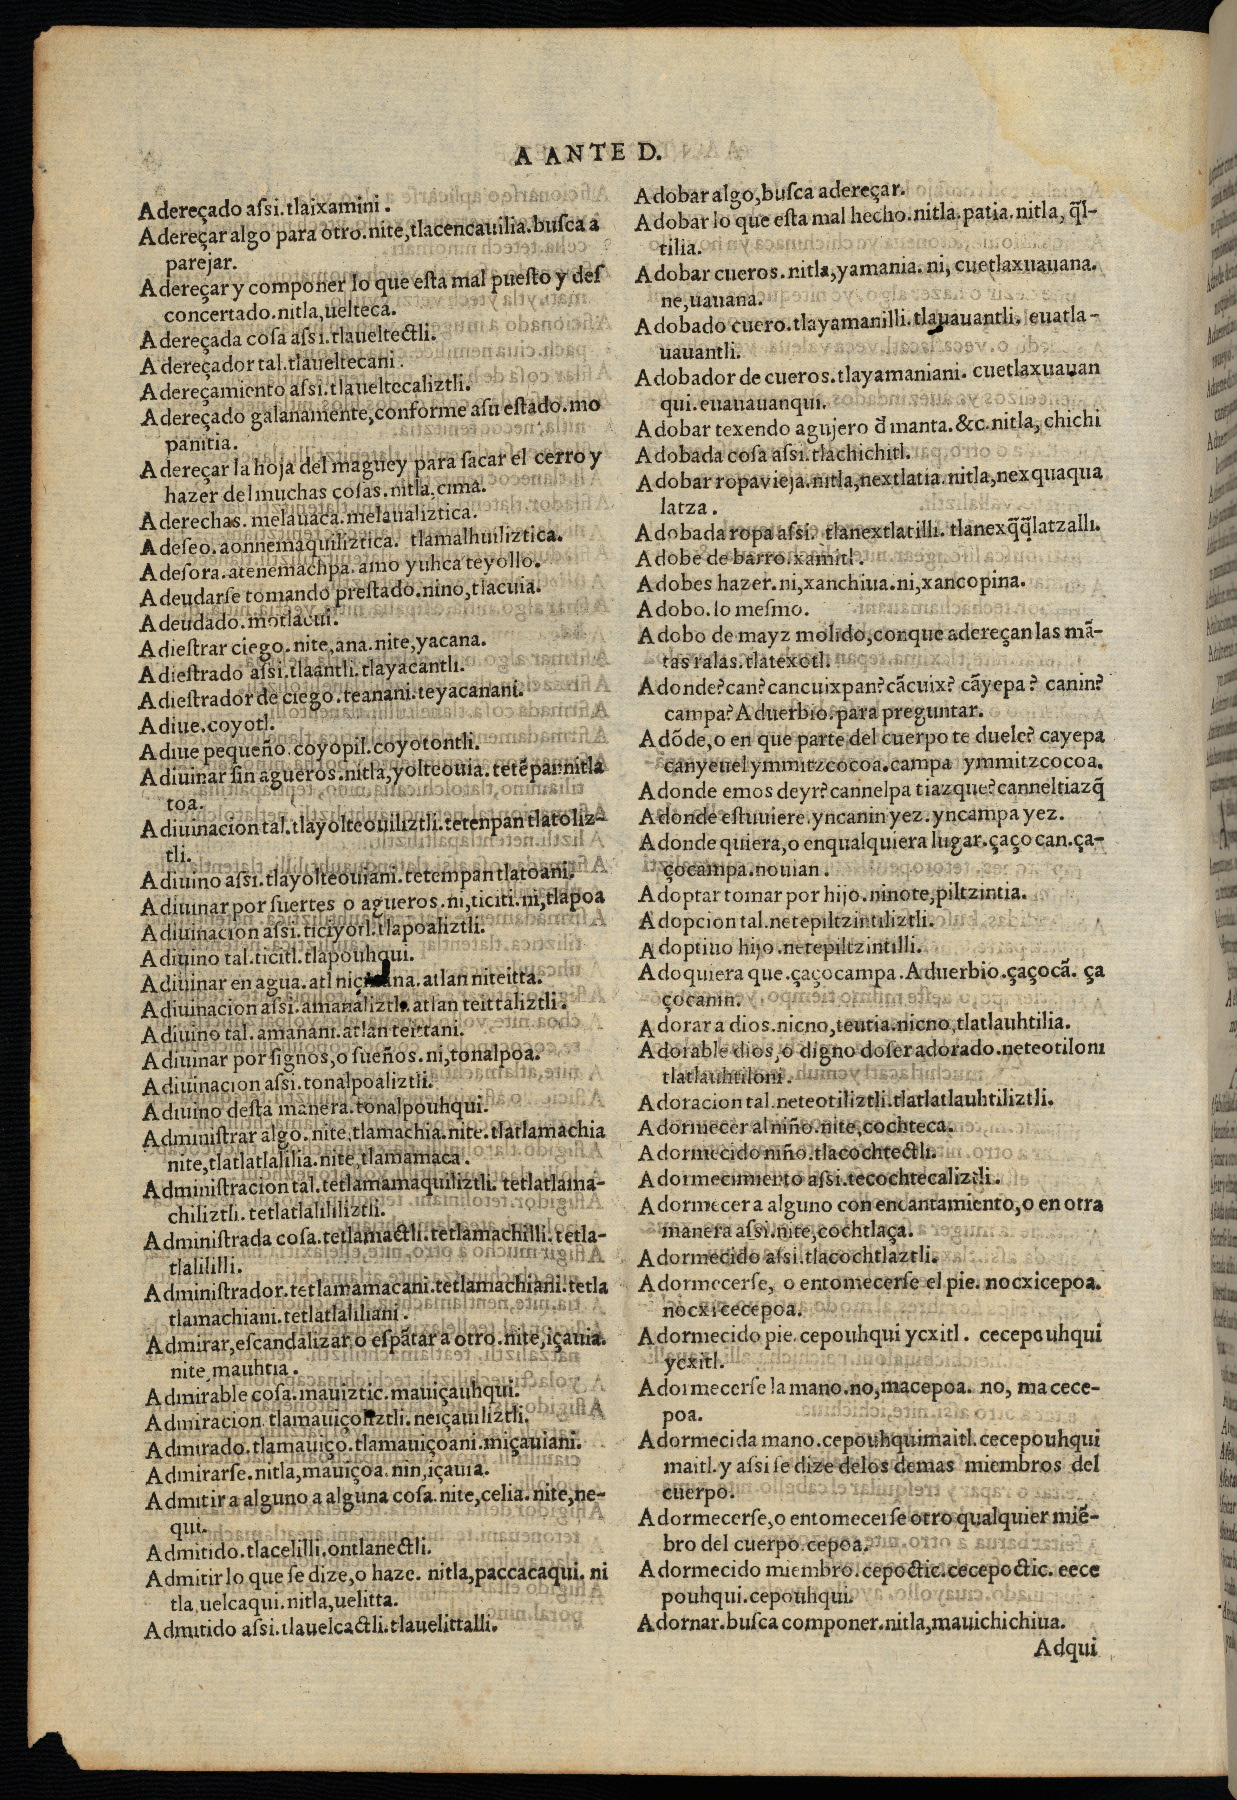 A ANTE D.
Adereçado aſsi.tlaixamini.
Adereçar algo para otro.nite,tlacencauilia.buſca a
parejar.
Adereçar y componer lo que eſta mal pueſto y deſ
concertado.nitla,uelteca.
Adereçada coſa aſsi.tlaueltectli.
Adereçador tal.tlaueltecani.
Adereçamiento aſsi.tlaueltecaliztli.
Adereçado galanamente,conforme aſu eſtado.mo
panitia.
Adereçar la hoja del maguey para ſacar el cerro y
hazer del muchas coſas.nitla,cima.
Aderechas. melauaca.melaualiztica.
Adeſeo.aonnemaquiliztica. tlamalhuiliztica.
Adeſora.atenemachpa.amo yuhca teyollo.
Adeudarſe tomando preſtado.nino,tlacuia.
Adeudado.motlacui.
Adieſtrar ciego.nite,ana.nite,yacana.
Adieſtrado aſsi.tlaantli.tlayacantli.
Adieſtrador de ciego.teanani.teyacanani.
Adiue.coyotl.
Adiue pequeño.coyopil.coyotontli.
Adiuinar ſin agueros.nitla,yolteouia.tetẽpannitla
toa.
Adiuinacion tal.tlayolteouiliztli.tetenpantlatoliz-
tli.
Adiuino aſsi.tlayolteouiani.tetempantlatoani.
Adiuinar por ſuertes o agueros.ni,ticiti.ni,tlapoa
Adiuinacion aſsi.ticiyotl.tlapoaliztli.
Adiuino tal.ticitl.tlapouhqui.
Adiuinar en agua.atl atlan niteitta.
Adiuinacion aſsi.amanaliztli.atlan teittaliztli.
Adiuino tal.amanani.atlan teittani.
Adiuinar por ſignos,o ſueños.ni,tonalpoa.
Adiuinacion aſsi.tonalpoaliztli.
Adiuino deſta manera.tonalpouhqui.
Adminiſtrar algo.nite,tlamachia.nite.tlatlamachia
nite,tlatlatlalilia.nite,tlamamaca.
Adminiſtracion tal.tetlamamaquiliztli.tetlatlama-
chiliztli.tetlatlalililiztli.
Adminiſtrada coſa.tetlamactli.tetlamachilli.tetla-
tlalililli.
Adminiſtrador.tetlamamacani.tetlamachiani.tetla
tlamachiani.tetlatlaliliani.
Admirar,eſcandalizar,o eſpãtar a otro.nite,içauia.
nite,mauhtia.
Admirable coſa.mauiztic.mauiçauhqui.
Admiracion tlamauiçoliztli.neiçauiliztli.
Admirado.tlamauiço.tlamauiçoani.miçauiani.
Admirarſe.nitla,mauiçoa.nin,içauia.
Admitir a alguno a alguna coſa.nite,celia.nite,ne-
qui.
Admitido.tlacelilli.ontlanectli.
Admitir lo que ſe dize,o haze. nitla,paccacaqui.ni
tla,uelcaqui.nitla,uelitta.
Admitido aſsi.tlauelcactli.tlauelittalli.
Adobar algo,buſca adereçar.
Adobar lo que eſta mal hecho.nitla.patia.nitla, q̃l-
tilia.
Adobar cueros.nitla,yamania.ni,cuetlaxuauana.
ne,uauana.
Adobado cuero.tlayamanilli.tlauauantli. euatla-
uauantli.
Adobador de cueros.tlayamaniani.cuetlaxuauan
qui.euauauanqui.
Adobar texendo agujero d̃ manta.&c.nitla,chichi
Adobada coſa aſsi.tlachichitl.
Adobar ropa vieja.nitla,nextlatia.nitla,nexquaqua
latza.
Adobada ropa aſsi. tlanextlatilli. tlanexq̃q̃latzalli.
Adobe de barro.xamitl.
Adobes hazer.ni,xanchiua.ni,xancopina.
Adobo.lo meſmo.
Adobo de mayz molido,conque adereçan las mã-
tas ralas.tlatexotl.
Adonde?can?cancuixpan?cãcuix? cãyepa? canin?
campa?Aduerbio.para preguntar.
Adõde,o en que parte del cuerpo te duele? cayepa
canyeuelymmitzcocoa.campa ymmitzcocoa.
Adonde emos deyr?cannelpa tiazque?canneltiazq̃
Adonde eſtuuiere.yncanin yez.yncampa yez.
Adonde quiera,o enqualquiera lugar.çaço can.ça-
çocampa.nouian.
Adoptar tomar por hijo.ninote,piltzintia.
Adopcion tal.netepiltzintiliztli.
Adoptiuo hijo.netepiltzintilli.
Adoquiera que.çaçocampa.Aduerbio.çaçocã. ça
çocanin.
Adorar a dios.nicno,teutia.nicno,tlatlauhtilia.
Adorable dios,o digno doſer adorado.neteotiloni
tlatlauhtiloni.
Adoracion tal.neteotiliztli.tlatlatlauhtiliztli.
Adormecer al niño.nite,cochteca.
Adormecido niño.tlacochtectli.
Adormecimierto aſsi.tecochtecaliztli.
Adormecer a alguno con encantamiento,o en otra
manera aſsi.nite,cochtlaça.
Adormecido aſsi.tlacochtlaztli.
Adormecerſe, o entomecerſe el pie. nocxicepoa.
nocxicecepoa.
Adormecido pie.cepouhqui ycxitl. cecepouhqui
ycxitl.
Adormecerſe la mano.no,macepoa. no, macece-
poa.
Adormecida mano.cepouhquimaitl.cecepouhqui
maitl.y aſsi ſe dize delos demas miembros del
cuerpo.
Adormecerſe,o entomecerſe otro qualquier miẽ-
bro del cuerpo.cepoa.
Adormecido miembro.cepoctic.cecepoctic. eece
pouhqui.cepouhqui.
Adornar.buſca componer.nitla,mauichichiua.
Adqui